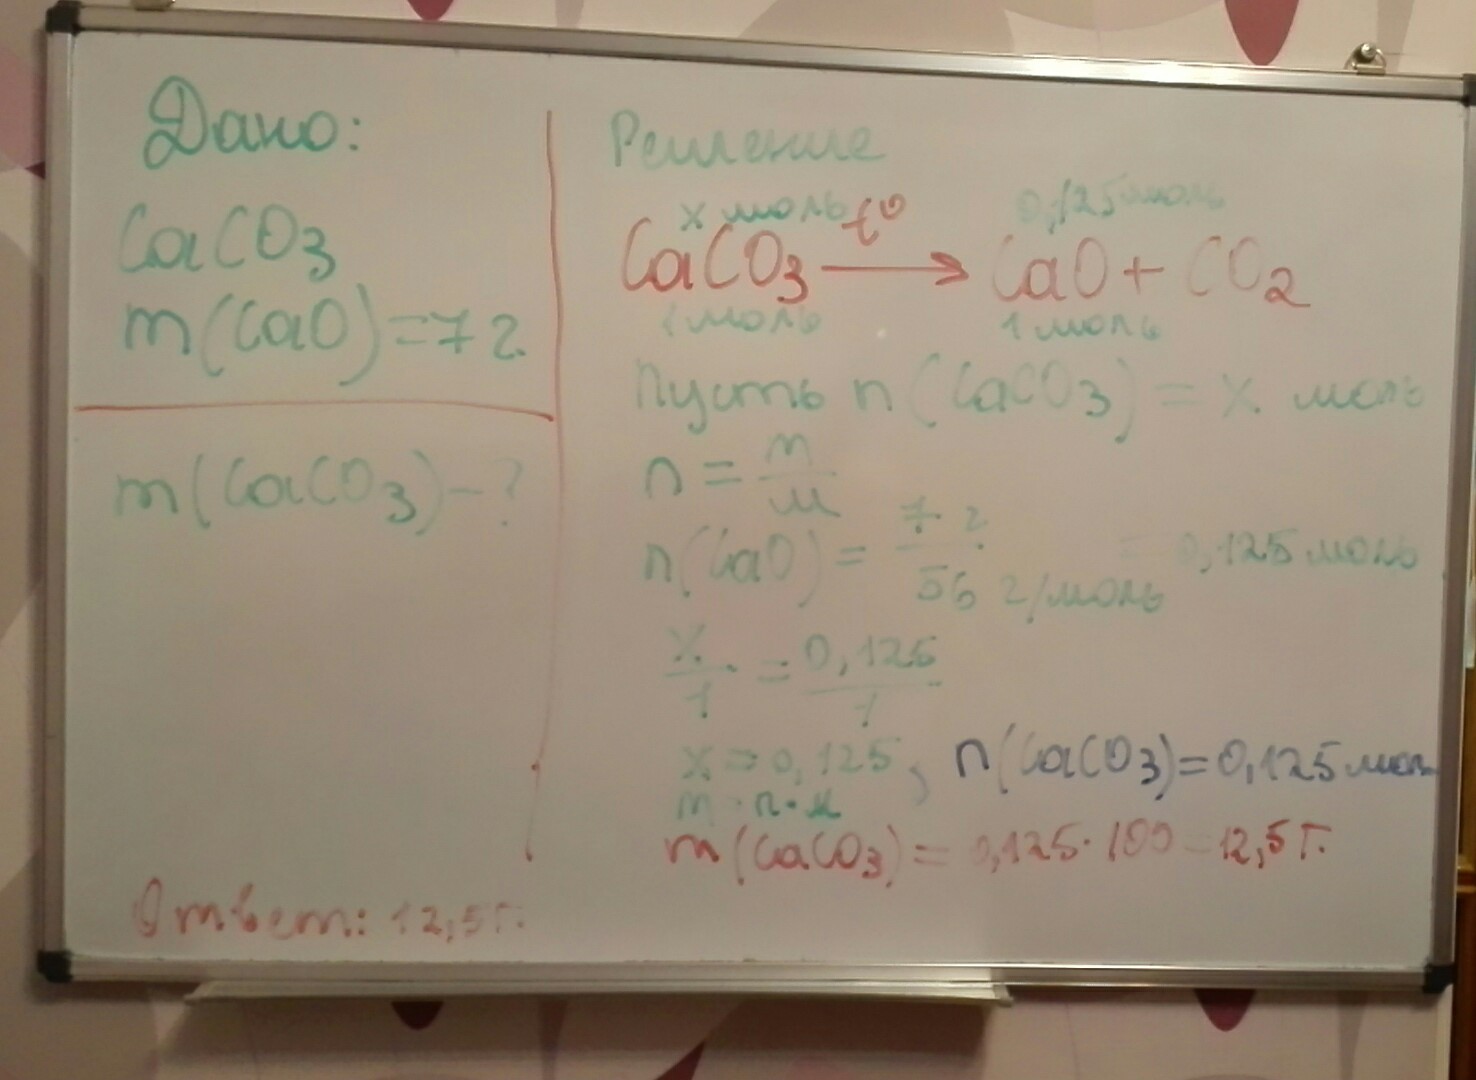 Дано:
CaCO3
m(CaO)=7г.
m(CaCO3)-?
Ответ: 12,5г.
Решение
x моль 0,125моль
CaCO3 t⁰ → CaO + CO2
1моль 1моль
Пусть n(CaCO3) = x моль
n = m/M
n(CaO) = 7г/56 г/моль = 0,125моль
x/1 = 0,125/1
x = 0,125, n(CaCO3)=0,125мол
m = n·M
m(CaCO3) = 0,125·100=12,5г.